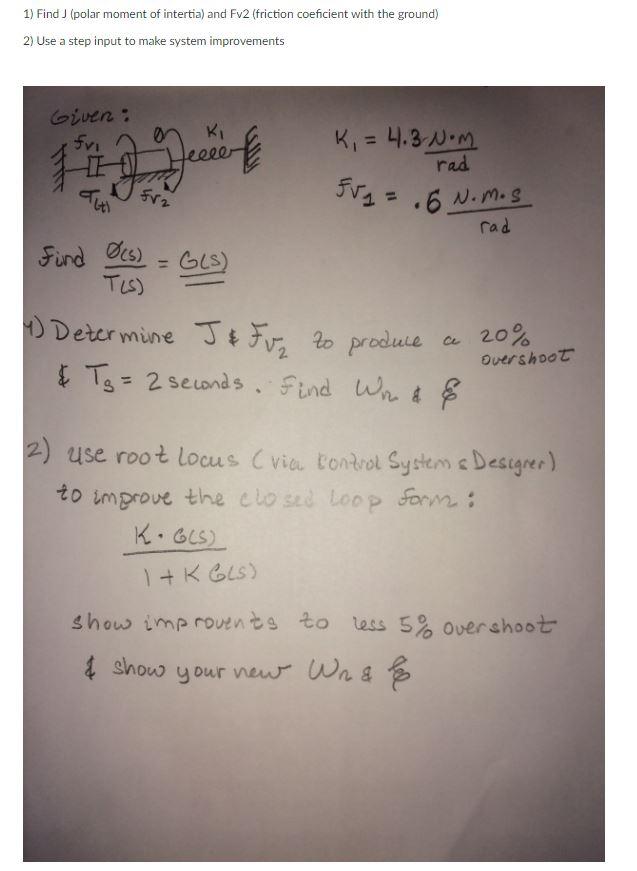 1) Find J (polar moment of intertia) and Fv2 (friction coeficient with the ground)
2) Use a step input to make system improvements
Given :
Fv1 θ K1
T(t) Fv2
K1 = 4.3 N·m
rad
Fv1 = .6 N.m.s
rad
Find Ø(s) = G(s)
T(s)
1) Determine J & Fv2 to produce a 20%
overshoot
& Ts = 2 seconds. Find Wn & ξ
2) use root locus (via Control Systems Designer)
to improve the closed loop form :
K · G(s)
1 + K G(s)
show improvents to less 5% overshoot
& show your new Wn & ξ